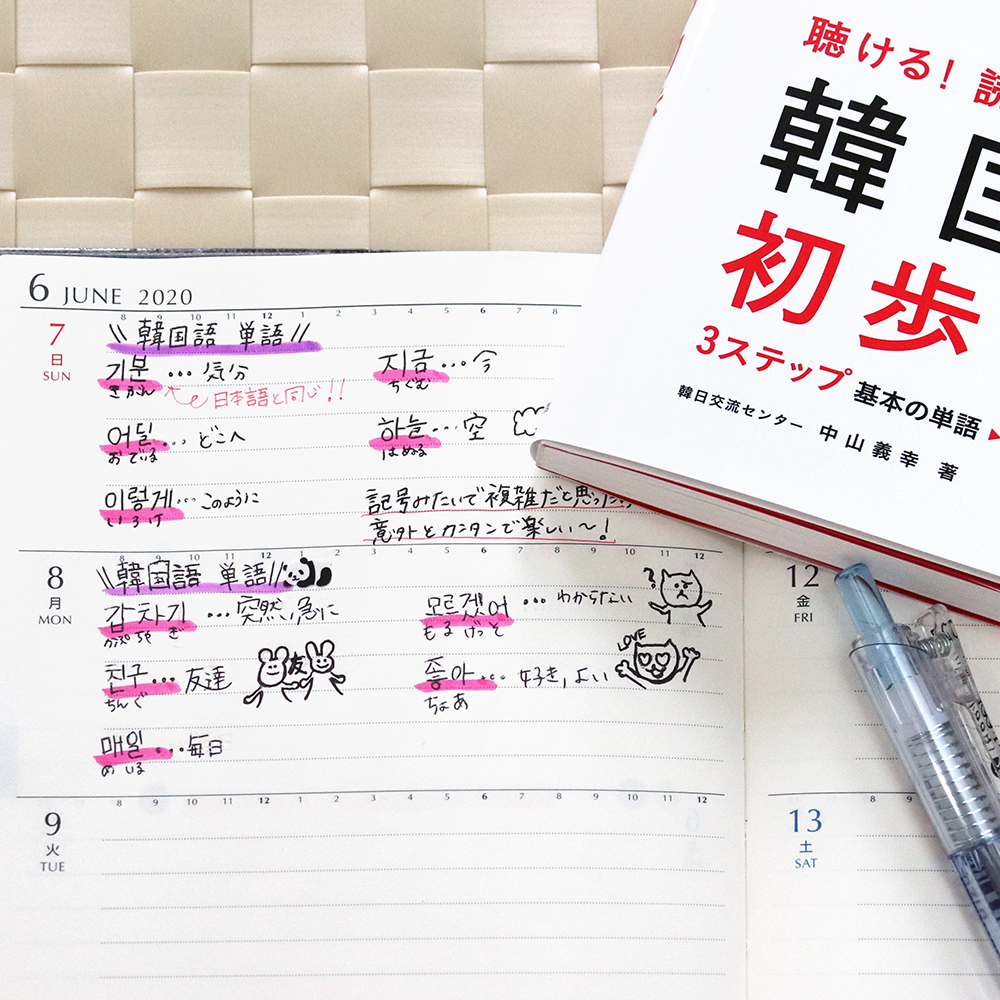 聴ける! 読
韓国
初歩
3ステップ 基本の単語
韓日交流センター 中山義幸 著
6 JUNE 2020
8 9 10 11 12 1 2 3 4 5 6 7 8
7
日
SUN
\\ 韓国語 単語 //
기분 ... 気分
きぶん
日本語と同じ!!
지금 ... 今
ちぐむ
어딜 ... どこへ
おでぃる
하늘 ... 空
はぬる
이렇게 ... このように
いろけ
記号みたいで複雑だと思った
意外とカンタンで楽しい〜!
8 9 10 11 12 1 2 3 4 5 6 7 8 9 10 11 12
8
月
MON
\\韓国語 単語//
감자기 ... 突然、急に
かぷちゃ ぎ
모르겠어 ... わからない
もるげっと
?
친구 ... 友達
ちんぐ
友
좋아 ... 好き, よい
ちょあ
LOVE
매일 ... 毎日
めいる
8 9 10 11 12 1 2 3 4 5 6 7 8 9 10 11 12
9
火
TUE
12
金
FRI
8 9
13
土
SAT